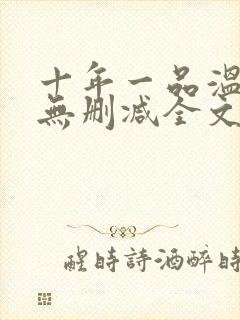 十年一品溫
無刪減全文
醒時詩酒醉時